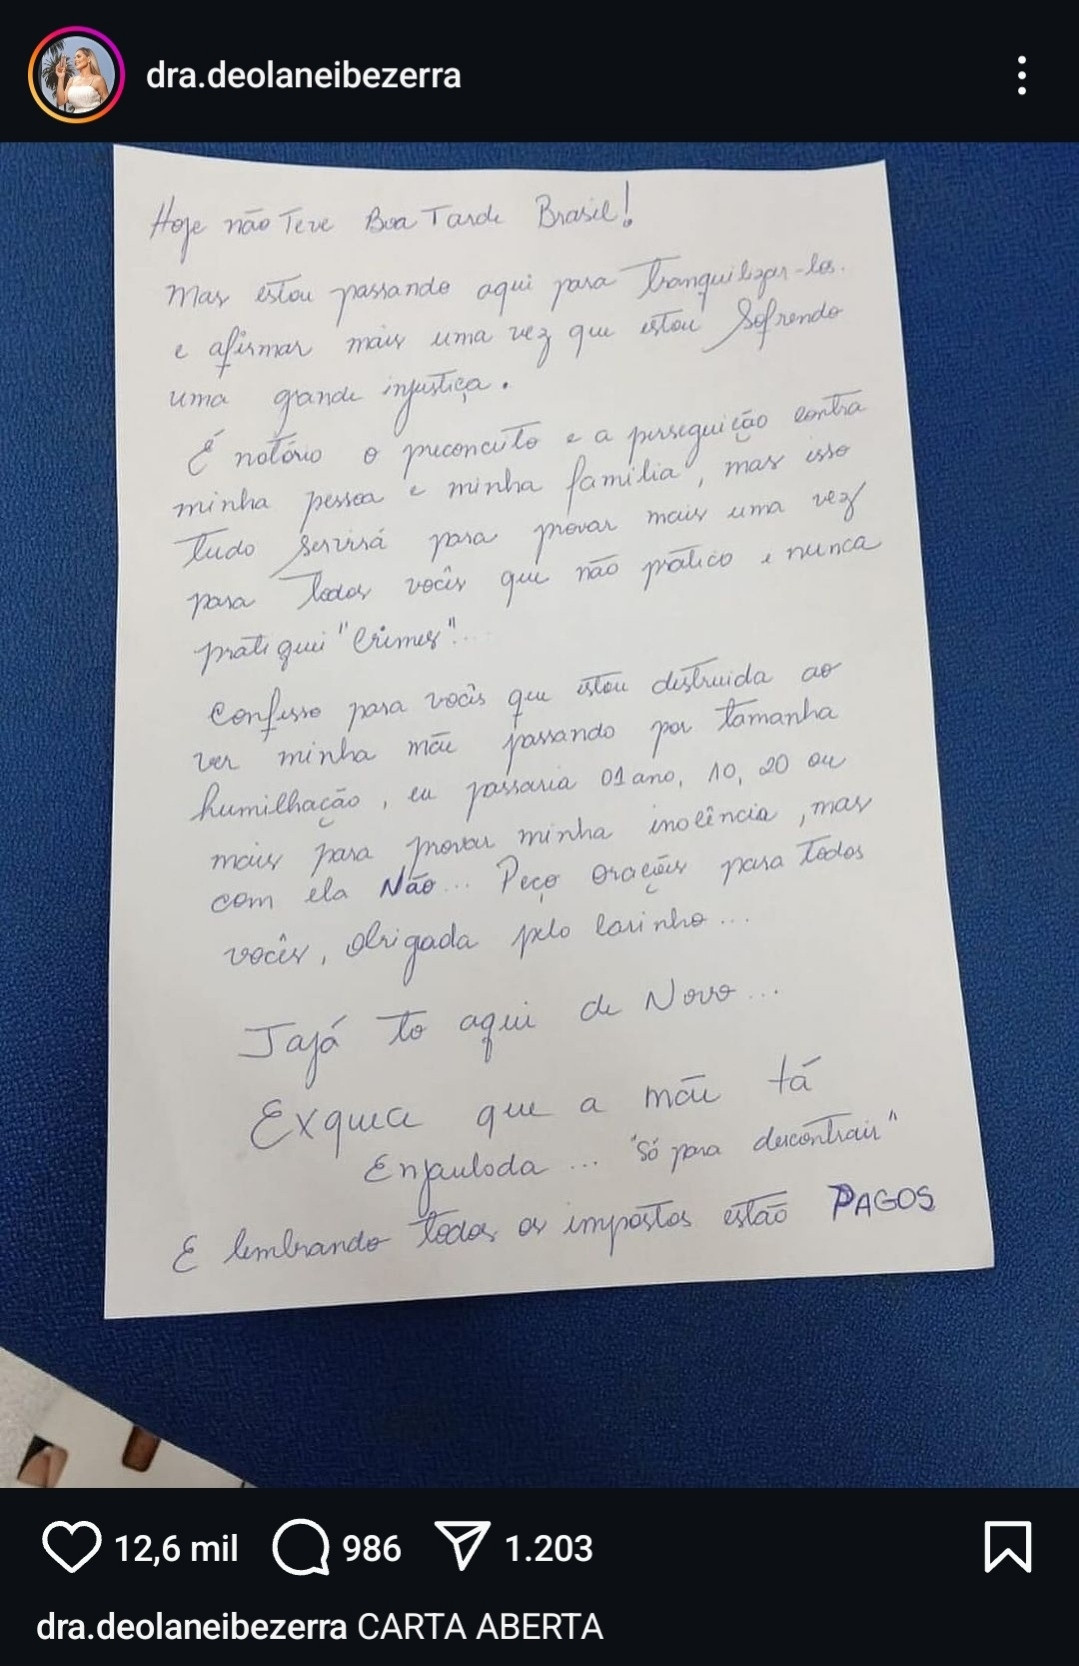 dra.deolaneibezerra
Hoje não Teve Boa Tarde Brasil!
Mas estou passando aqui para Tranquilizar-los.
e afirmar mais uma vez que estou Sofrendo
uma grande injustiça.
É notório o preconceito e a perseguição contra
minha pessoa e minha família, mas isso
Tudo Servirá para provar mais uma vez
para Todos vocês que não prático e nunca
pratiquei "Crimes"...
Confesso para vocês que estou destruida ao
ver minha mãe passando por tamanha
humilhação, eu passaria 01 ano, 10, 20 ou
mais para provar minha inocência, mas
com ela Não... Peço orações para todos
vocês, obrigada pelo carinho...
Jajá to aqui de Novo...
Exquece que a mãe tá
Enjaulada... "Só para descontrair"
E lembrando todos os impostos estão PAGOS
12,6 mil 986 1.203
dra.deolaneibezerra CARTA ABERTA